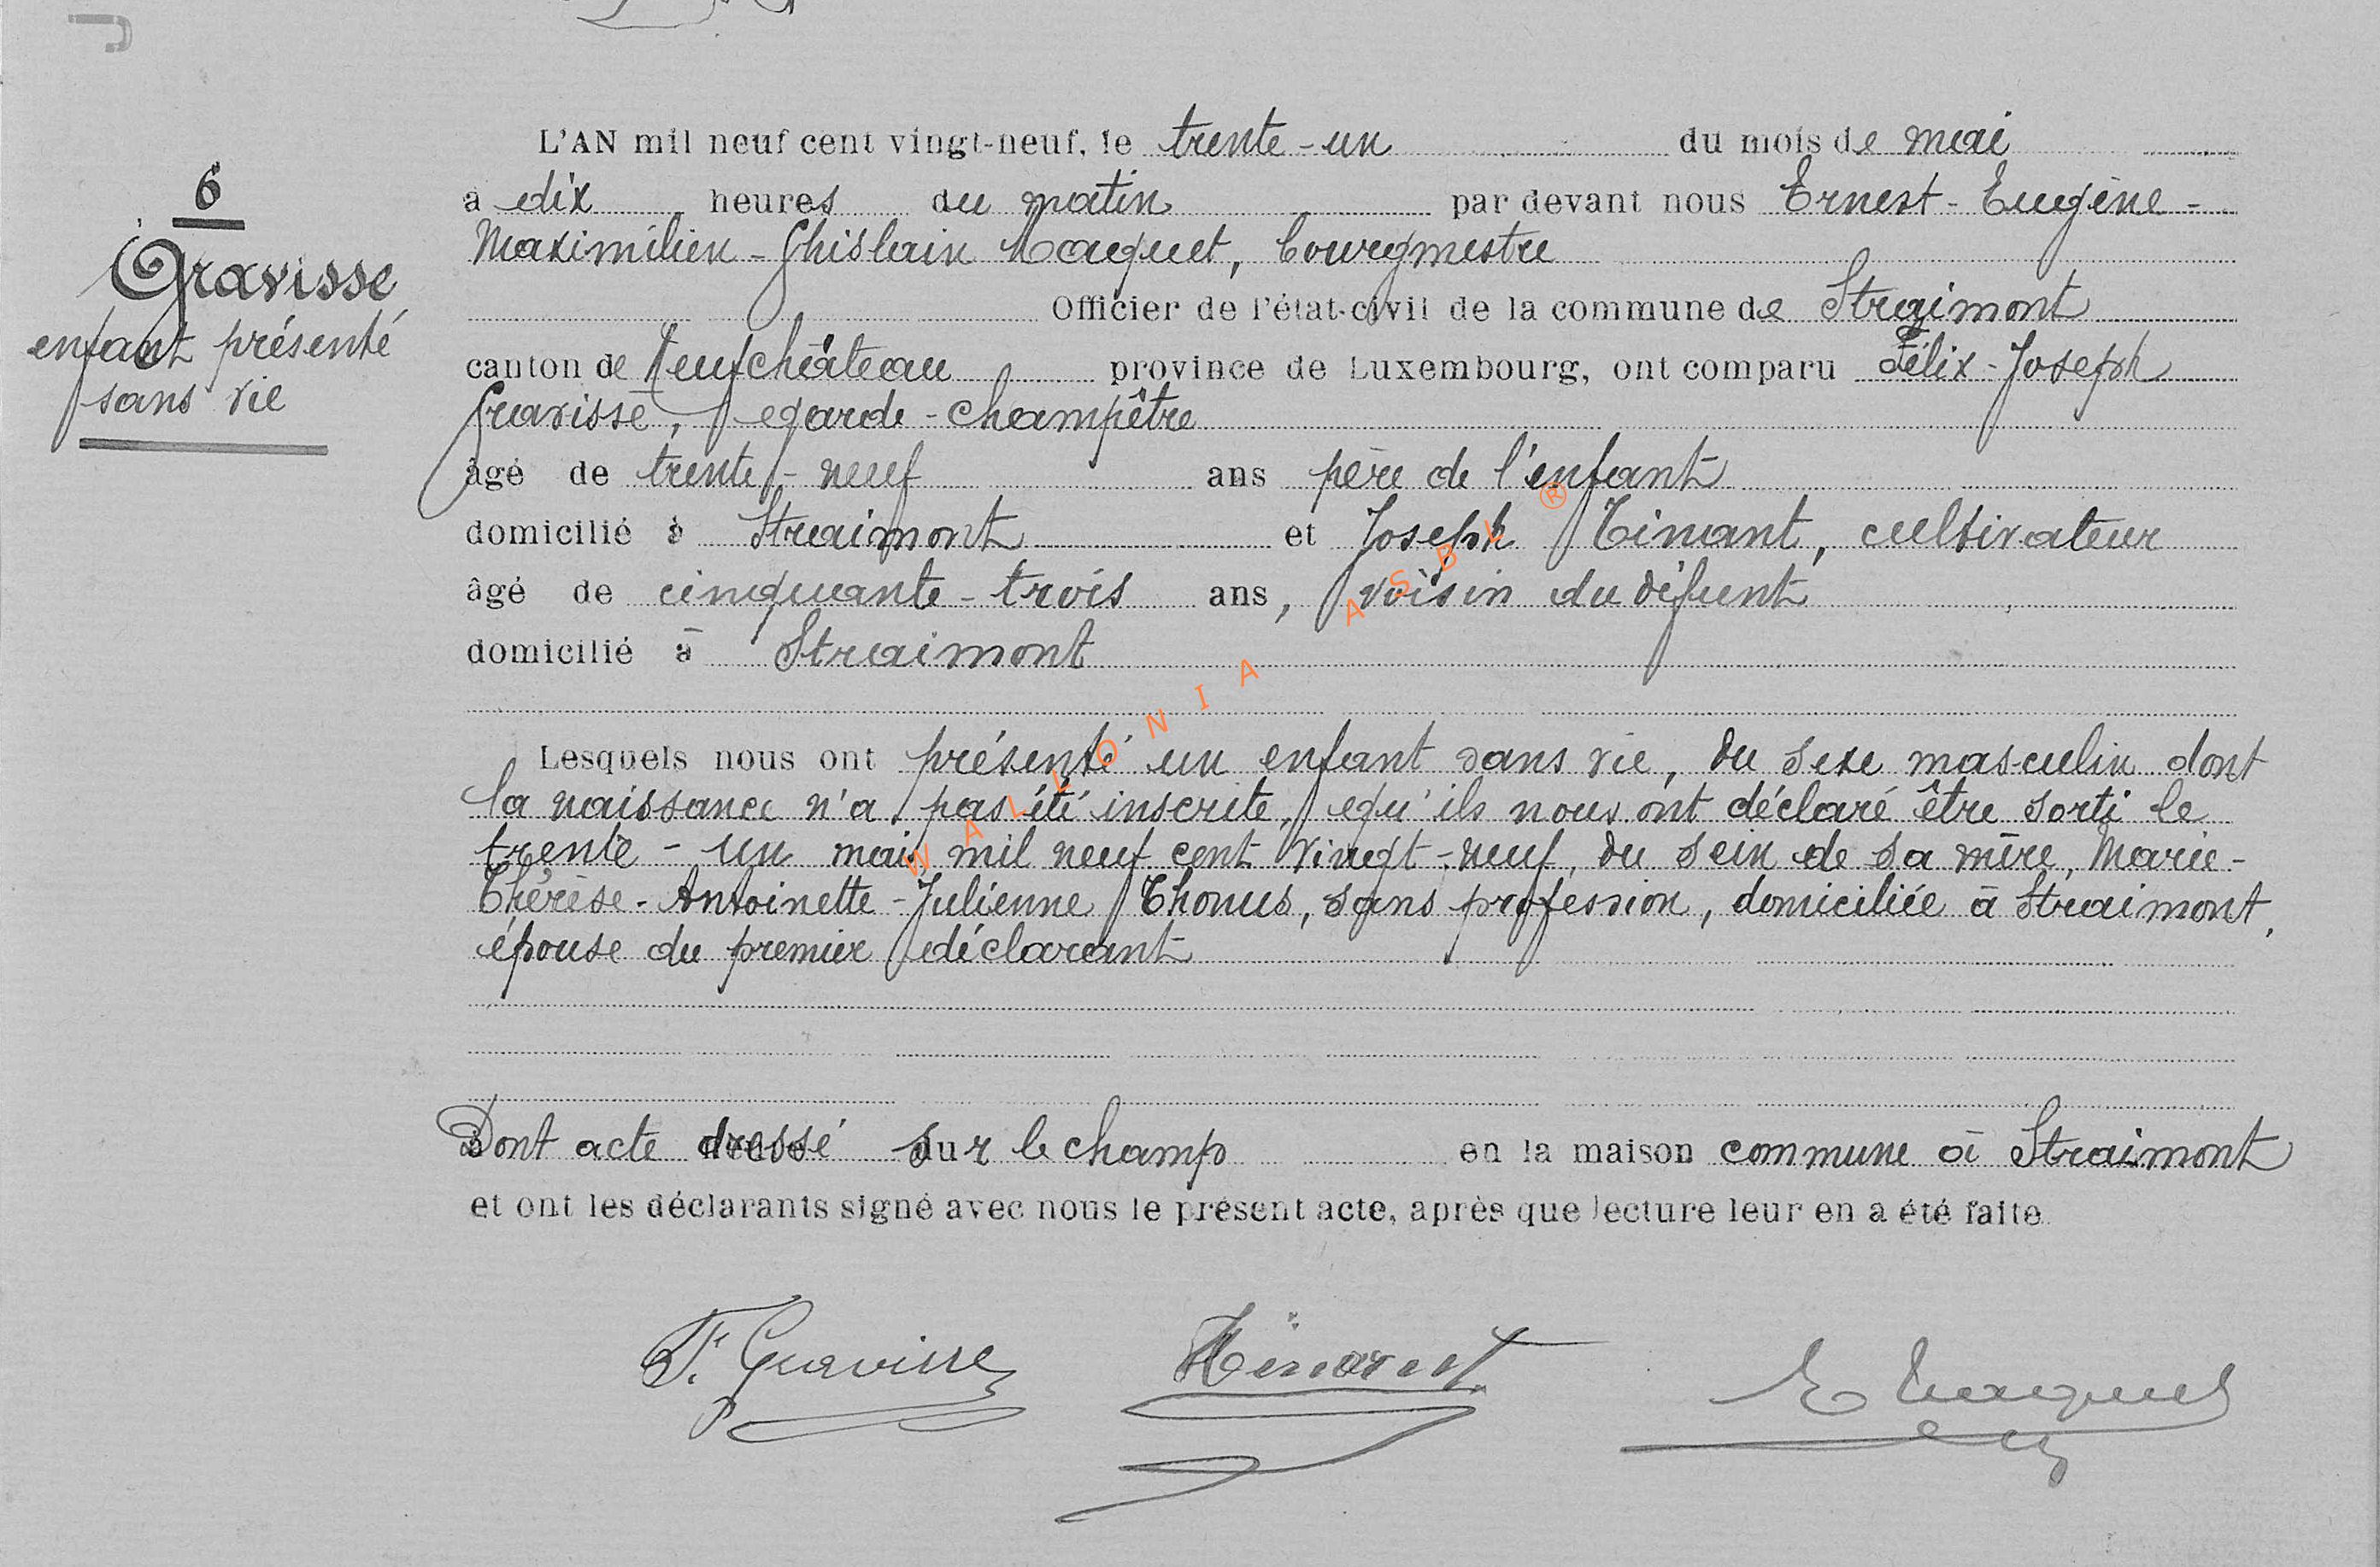 6
Gravisse
enfant présenté
sans vie
L'AN mil neuf cent vingt-neuf, le trente-un du mois de mai
à dix heures du matin par devant nous Ernest-Eugène-
Maximilien-Ghislain Macquet, bourgmestre
Officier de l'état-civil de la commune de Straimont
canton de Neufchâteau province de Luxembourg, ont comparu Félix-Joseph
Gravisse, garde-champêtre
âgé de trente-neuf ans père de l'enfant
domicilié à Straimont et Joseph Tinant, cultivateur
âgé de cinquante-trois ans, voisin du défunt
domicilié à Straimont
Lesquels nous ont présenté un enfant sans vie, du sexe masculin dont
la naissance n'a pas été inscrite, qu'ils nous ont déclaré être sorti le
trente-un mai mil neuf cent vingt-neuf, du sein de sa mère, Marie-
Thérèse-Antoinette-Julienne Thonus, sans profession, domiciliée à Straimont,
épouse du premier déclarant
Dont acte dressé sur le champ en la maison commune à Straimont
et ont les déclarants signé avec nous le présent acte, après que lecture leur en a été faite.
F. Gravisse Tinant E Macquet
WALLONIA ASBL ®